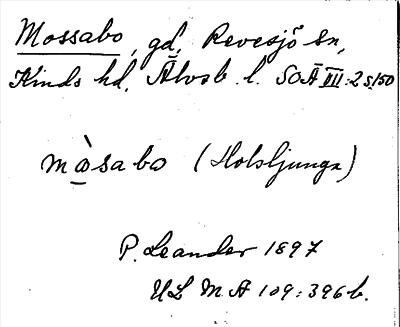 Mossabo, gd, Revesjö sn,
Kinds hd, Älvsb. l. SOÄ III:2 s.150
mo̠̊̀sabo (Holsljunga)
P. Leander 1897
ULMA 109:396 b.